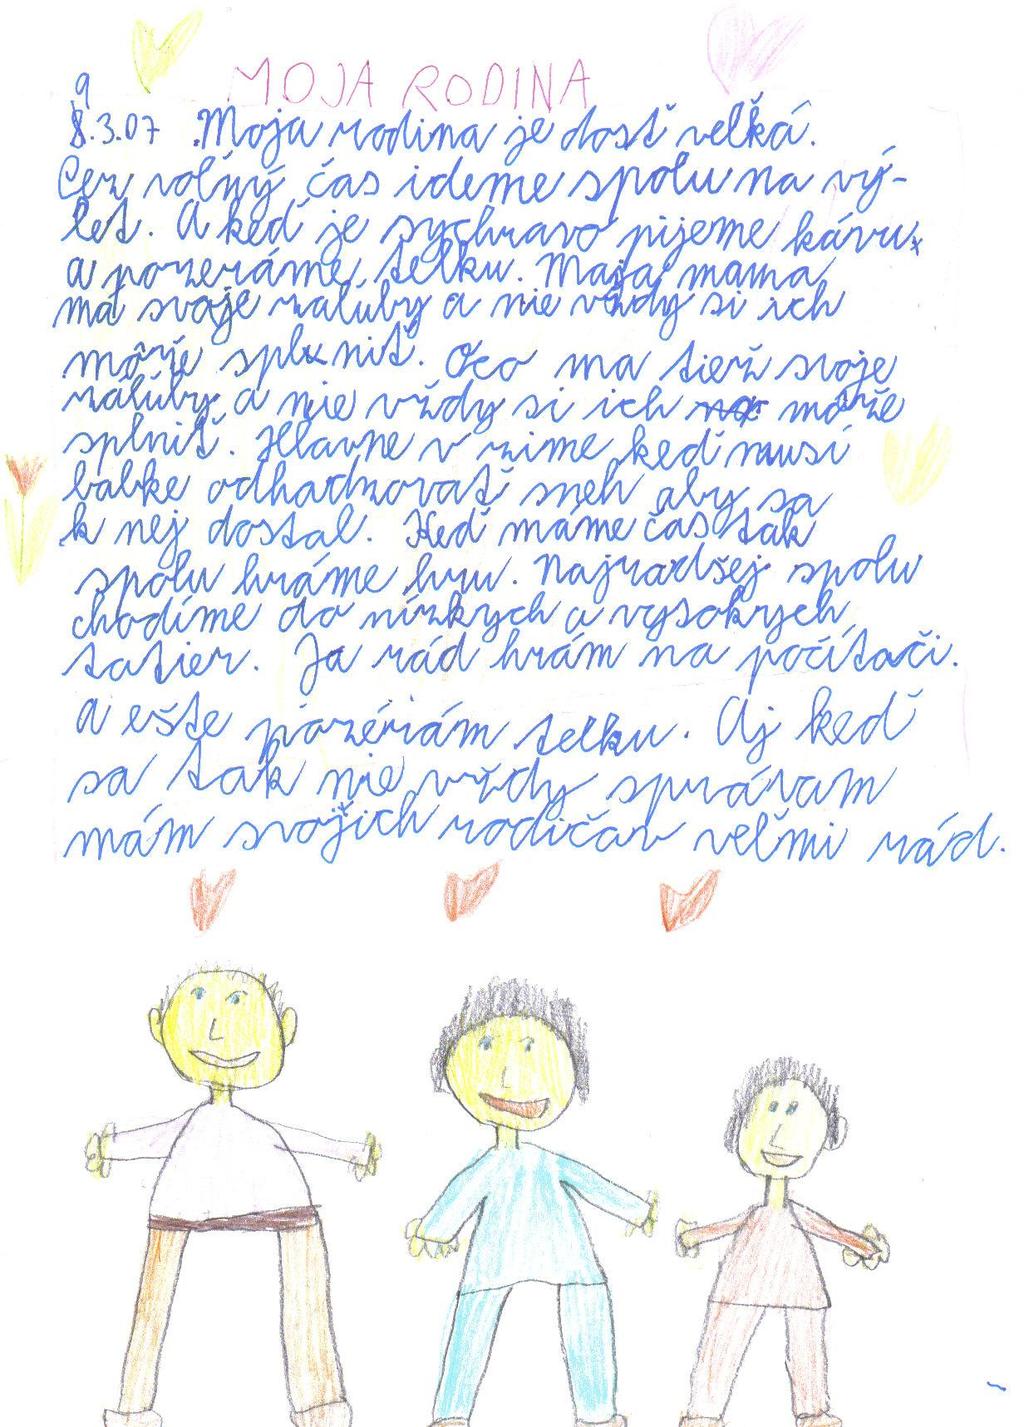 MOJA RODINA
9
8.3.07 Moja rodina je dosť veľká.
Cez voľný čas ideme spolu na vý-
let. A keď je sychravo pijeme kávu
a pozeráme telku. Moja mama
má svoje záluby a nie vždy si ich
môže splniť. Oco ma tiež svoje
záluby a nie vždy si ich môže
splniť. Hlavne v zime keď musí
babke odhadzovať sneh aby sa
k nej dostal. Keď máme čas tak
spolu hráme hru. Najradšej spolu
chodíme do nízkych a vysokych
tatier. Ja rád hrám na počítači.
a ešte pozérám telku. Aj keď
sa tak nie vždy správam
mám svojich rodičov veľmi rád.